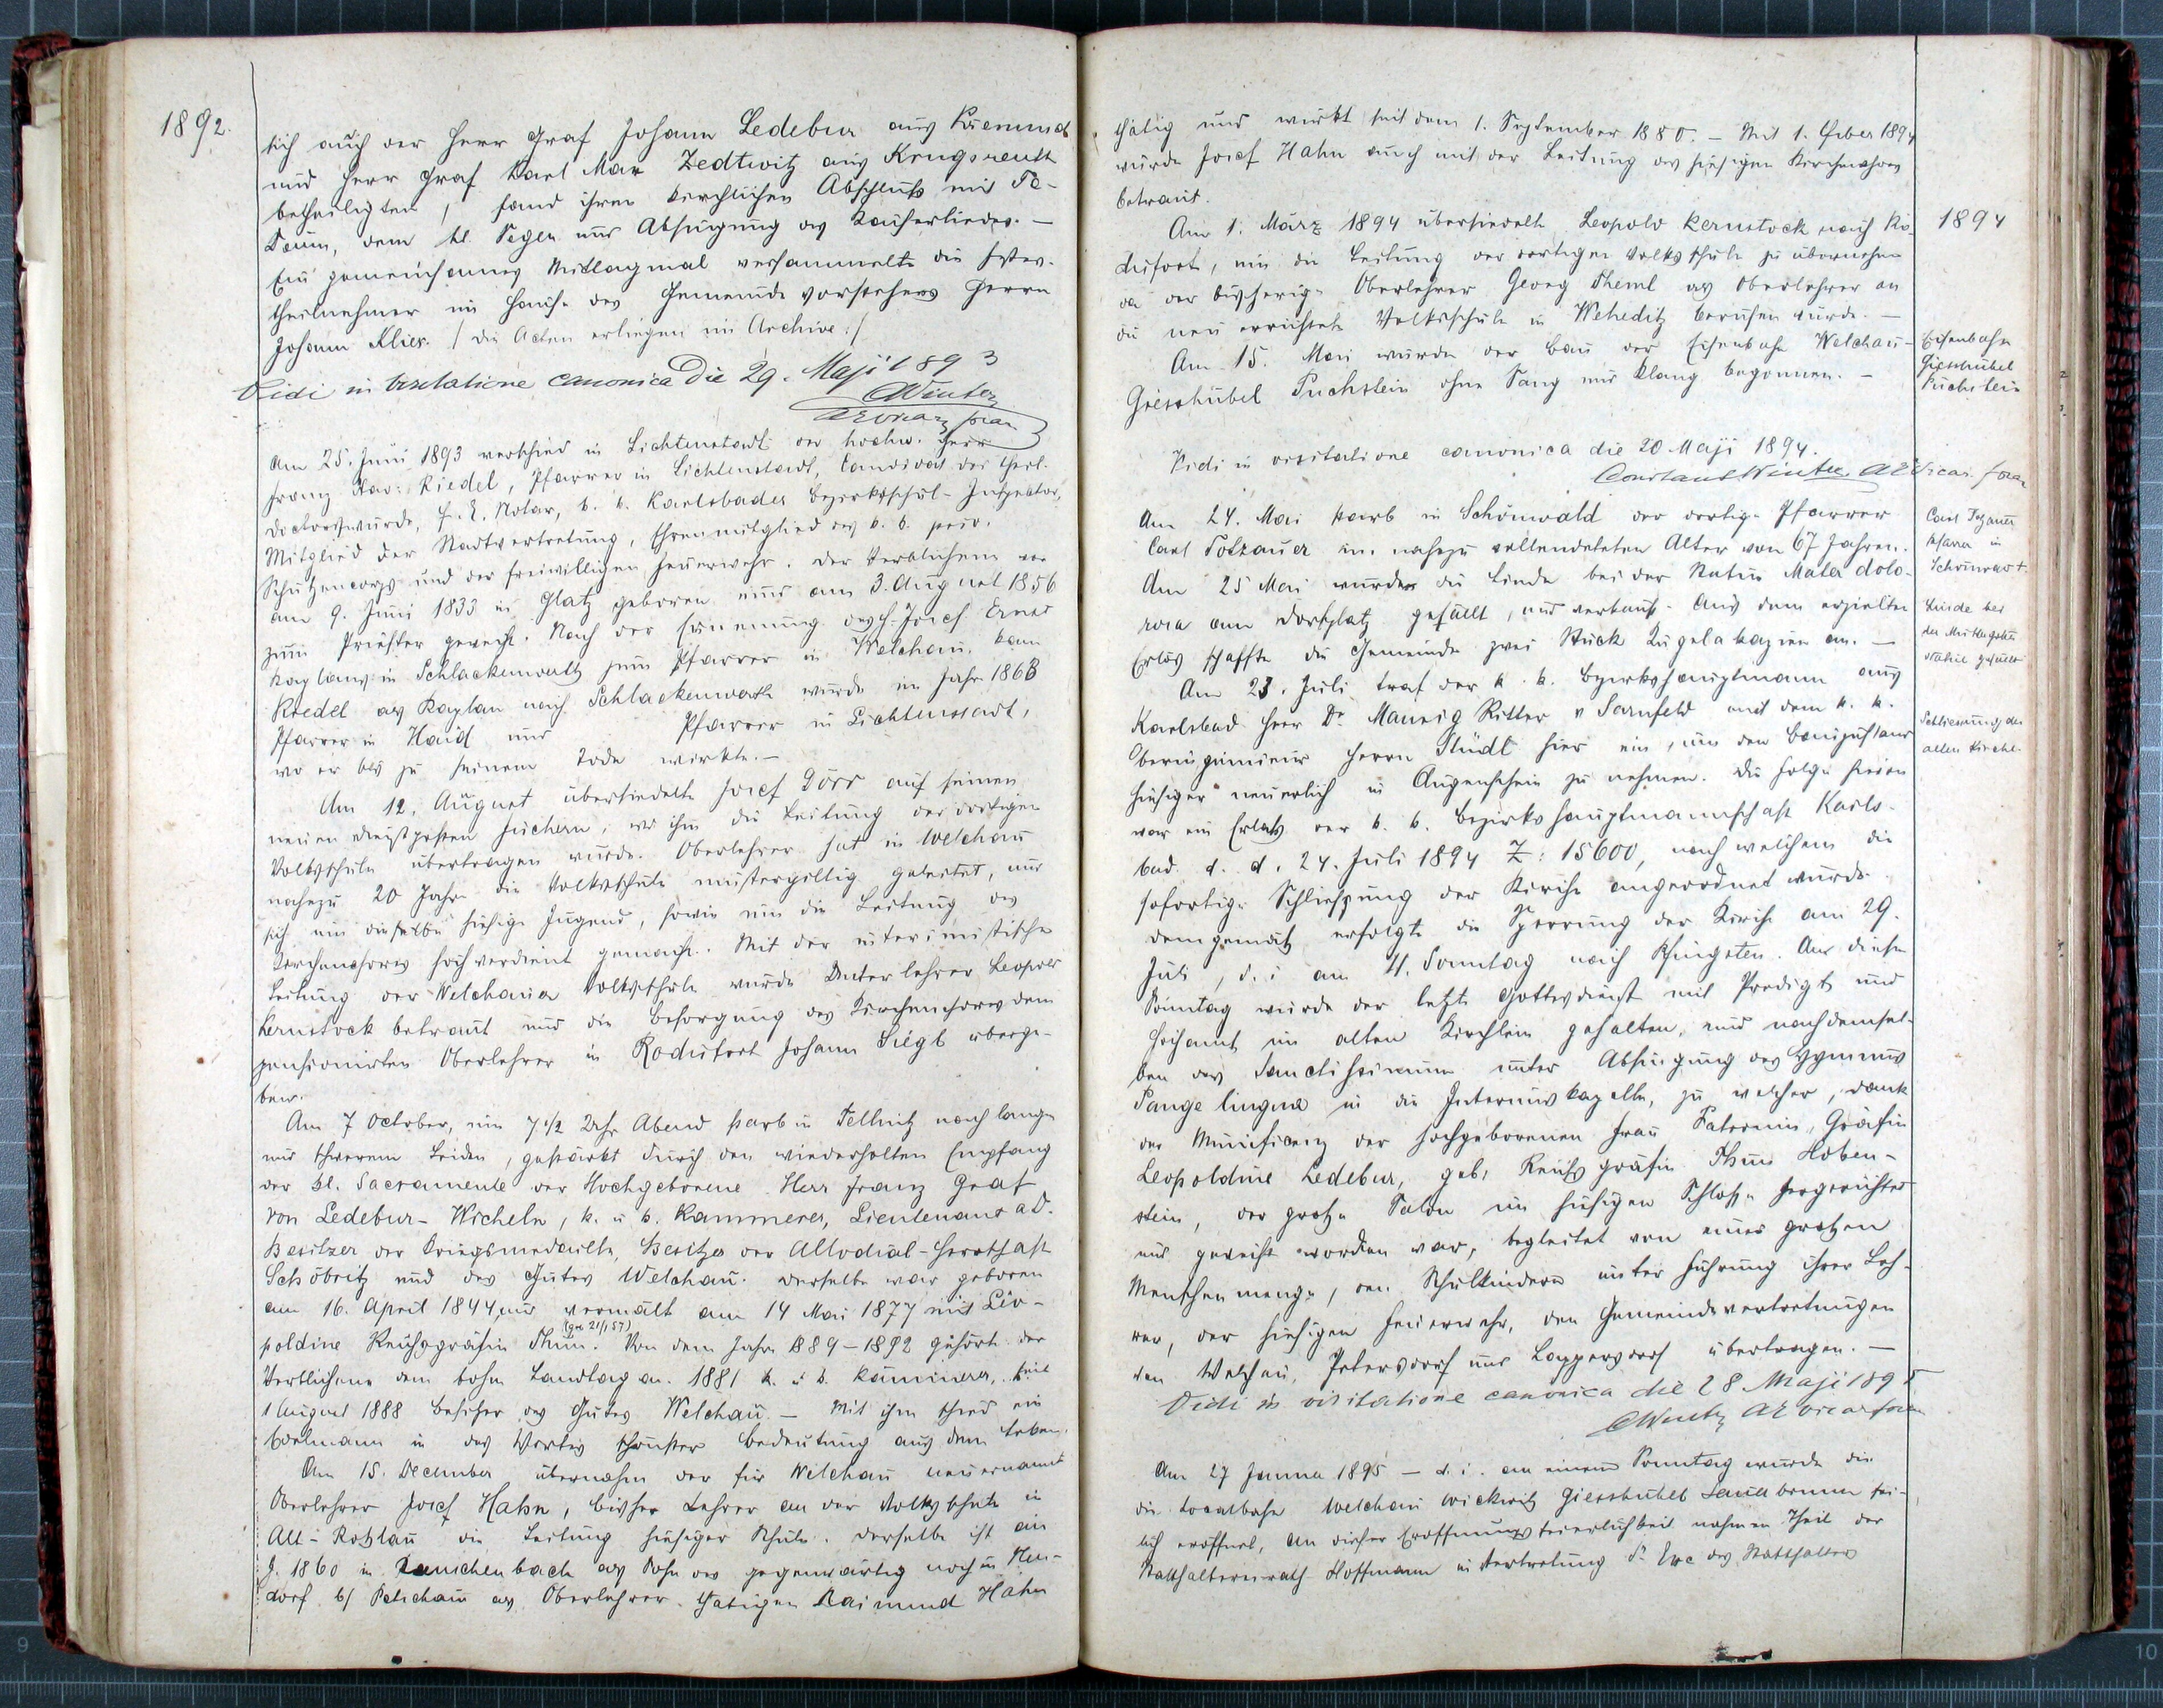 1892.
sich auch der Herr Graf Johann Ledebur aus Kremusch
und Herr Graf Karl Max Zedtwitz aus Krugsreuth
betheiligten, fand ihren kirchlichen Abschluss mit Te-
Deum, dem hl. Segen und Absingung des Kaiserliedes. —
Ein gemeinsames Mittagmal versammelte die Festes-
theilnehmer im Hause des Gemeindevorstehers Herrn
Johann Klier. / die Acten erliegen im Archive :/
Vidi in visitatione canonica Die 29. Maji 1893
CWinter
AEvicar foran
Am 25. Juni 1893 verschied in Lichtenstadt der hochw. Herr
Franz Xav: Riedel, Pfarrer in Lichtenstadt, Candidat der theol.
Doctorswürde, f. e. Notar, k. k. Karlsbader Bezirksschul-Inspector,
Mitglied der Stadtvertretung, Ehrenmitglied des k. k. priv.
Schützencorps und der freiwilligen Feuerwehr. Der Verblichene war
am 9. Juni 1833 in Glatz geboren und am 3. August 1856
zum Priester geweiht. Nach der Ernennung des H. Josef Ernst
Kaplans in Schlackenwerth zum Pfarrer in Welchau, kam
Riedel als Kaplan nach Schlackenwerth wurde im Jahre 1863
Pfarrer in Haid und Pfarrer in Lichtenstadt,
wo er bis zu seinem Tode wirkte. —
Am 12. August übersiedelte Josef Dörr auf seinen
neuen Dienstposten Fischern, wo ihm die Leitung der dortigen
Volksschule übertragen wurde. Oberlehrer hat in Welchau
nahezu 20 Jahre die Volksschule mustergiltig geleitet, und
sich um dieselbe hiesige Jugend, sowie um die Leitung des
Kirchenchores hochverdient gemacht. Mit der interimistischen
Leitung der Welchauer Volksschule wurde Unterlehrer Leopold
Kernstock betraut und die Besorgung des Kirchenchores dem
pensionirten Oberlehrer in Rodisfort Johann Siegl überge-
ben.
Am 7 October, um 7 1/2 Uhr Abend starb in Tellnitz nach langen
und schwerem Leiden, gestärkt durch den wiederholten Empfang
der hl. Sacramente der Hochgeborene Herr Franz Graf
von Ledebur-Wicheln, k. u k. Kammerer, Lieutenant a D.
Besitzer der Kriegsmedaille, Besitzer der Allodial-Herrschaft
Schöbritz und des Gutes Welchau. Derselbe war geboren
am 16. April 1844 und vermält am 14 Mai 1877 mit Leo-
(geb 21/1 57)
poldine Reichsgräfin Thun. Von dem Jahre 1889-1892 gehörte der
Verblichene dem böhm Landtag an. 1881 k. u k. Kämmerer, seit
1 August 1888 Besitzer des Gutes Welchau. — Mit ihm schied ein
Edelmann in des Wortes schönster Bedeutung aus dem Leben.
Am 15. December übernahm der für Welchau neuernannte
Oberlehrer Josef Hahn, bisher Lehrer an der Volksschule in
Alt-Rohlau die Leitung hiesiger Schule. Derselbe ist im
J. 1860 in Lauschenbach als Sohn des gegenwärtig noch in Neu-
dorf b/ Petschau als Oberlehrer thätigen Raimund Hahn
thätig und wirkt seit dem 1. September 1880. — Mit 1. Feber 1894
wurde Josef Hahn auch mit der Leitung des hiesigen Kirchenchores
betraut.
Am 1. März 1894 übersiedelte Leopold Kernstock nach Ro-
disfort, um die Leitung der dortigen Volksschule zu übernehmen
da der bisherige Oberlehrer Georg Theml als Oberlehrer an
die neu errichtete Volksschule in Weheditz berufen wurde. —
Am 15. Mai wurde der Bau der Eisenbahn Welchau-
Giesshübel Puchstein ohne Sang und Klang begonnen. —
1894
Eisenbahn
Giesshübel
Puchstein
Vidi in visitatione canonica die 20 Maji 1894.
Constant Winter AEvicar. foran
Am 24. Mai starb in Schönwald der dortige Pfarrer
Carl Totzauer im nahezu vollendeten Alter von 67 Jahren.
Am 25 Mai wurde die Linde bei der Statue Mater dolo-
rosa am Dorfplatz gefällt, und verkauft. Aus dem erzielten
Erlös schaffte die Gemeinde zwei Stück Kugelakazien an. —
Am 23. Juli traf der k. k. Bezirkshauptmann aus
Karlsbad Herr Dr Maurig Ritter v Sarnfeld mit dem k. k.
Oberingenieur Herrn Stüdl hier ein, um den Bauzustand
hiesiger neuerlich in Augenschein zu nehmen. Die Folge hievon
war ein Erlaß der k. k. Bezirkshauptmannschaft Karls-
bad d. d. 24. Juli 1894 Z: 15600, nach welchem die
sofortige Schließung der Kirche angeordnet wurde.
Demgemäß erfolgte die Sperrung der Kirche am 29.
Juli, d. i am 11. Sonntag nach Pfingsten. An diesem
Sonntag wurde der letzte Gottesdienst mit Predigt und
Hochamt im alten Kirchlein gehalten, und nach demsel-
ben das Sanctissimum unter Absingung des Hymnus
Pange lingua in die Interimskapelle, zu welcher, dank
der Munificenz der hochgeborenen Frau Patronin, Gräfin
Leopoldine Ledebur, geb. Reichsgräfin Thun Hohen-
stein, der große Salon im hiesigen Schlosse hergerichtet
und geweiht worden war, begleitet von einer großen
Menschenmenge, den Schulkindern unter Führung ihrer Leh-
rer, der hiesigen Feuerwehr, den Gemeindevertretungen
von Welchau, Petersdorf und Lappersdorf übertragen. —
Carl Totzauer
Pfarrer in
Schönwald †.
Linde bei
der Muttergottes
Statue gefällt
Schliessung der
alten Kirche.
Vidi in visitatione canonica die 28 Maji 1895
CWinter AE vicar foran
Am 27 Januar 1895 — d. i. an einem Sonntag wurde die
die Localbahn Welchau Wickwitz Giesshübel Sauerbrunn fei-
lich eröffnet, An dieser Eröffnungsfeierlichkeit nahmen Theil der
Statthaltereirath Hoffmann in Vertretung Sr Exc des Statthalters